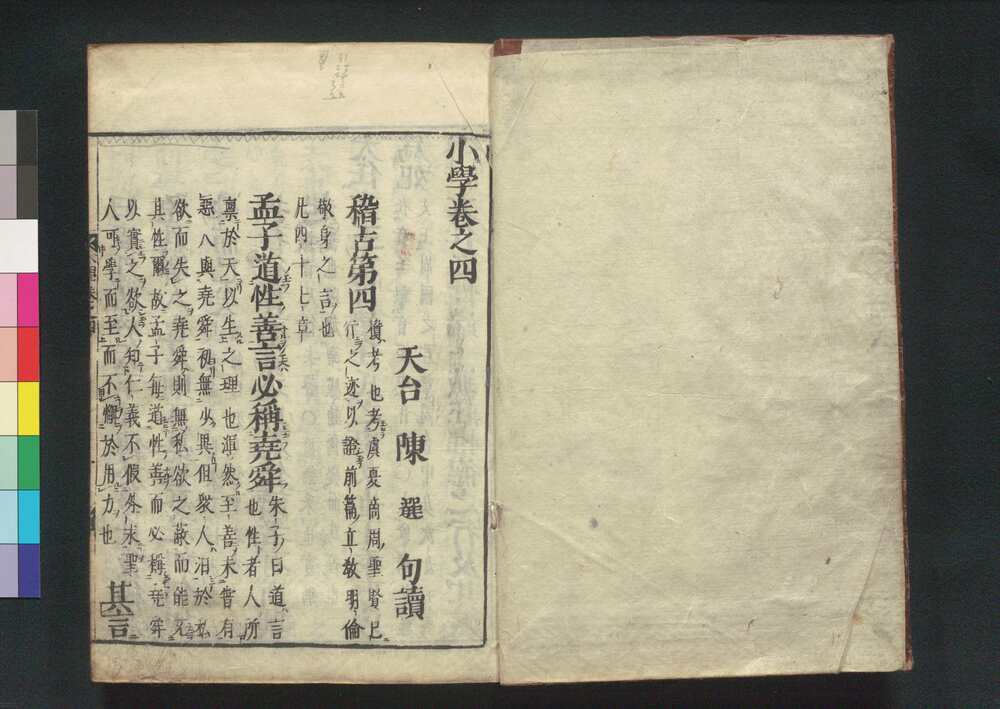 小學卷之四
天台 陳 選 句讀
稽古第四
稽考也考虞夏商周聖賢已
行之迹以證前篇立教明倫
敬身之言也
凡四十七章
孟子道性善言必稱堯舜
朱子曰道言
也性者人所
稟於天以生之理也渾然至善未嘗有
惡人與堯舜初無少異但衆人汨於私
欲而失之堯舜則無私欲之蔽而能充
其性爾故孟子每道性善而必稱堯舜
以實之欲人知仁義不假外求聖
人可學而至而不懈於用力也
其言